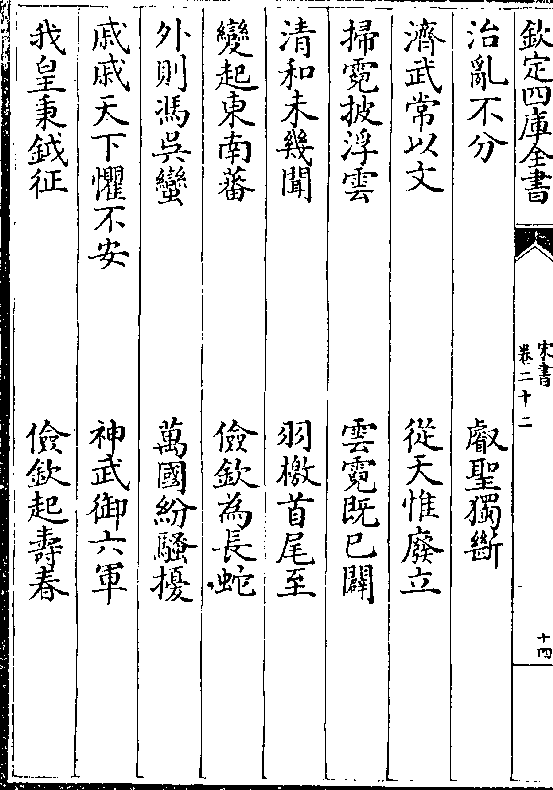 欽定四庫全書
宋書
卷二十二
十四
治亂不分 睿聖獨斷
濟武常以文 從天惟廢立
掃霓披浮雲 雲霓既已闢
清和未幾聞 羽檄首尾至
變起東南蕃 儉欽為長蛇
外則馮吳蠻 萬國紛騷擾
戚戚天下懼不安 神武御六軍
我皇秉鉞征 儉欽起壽春